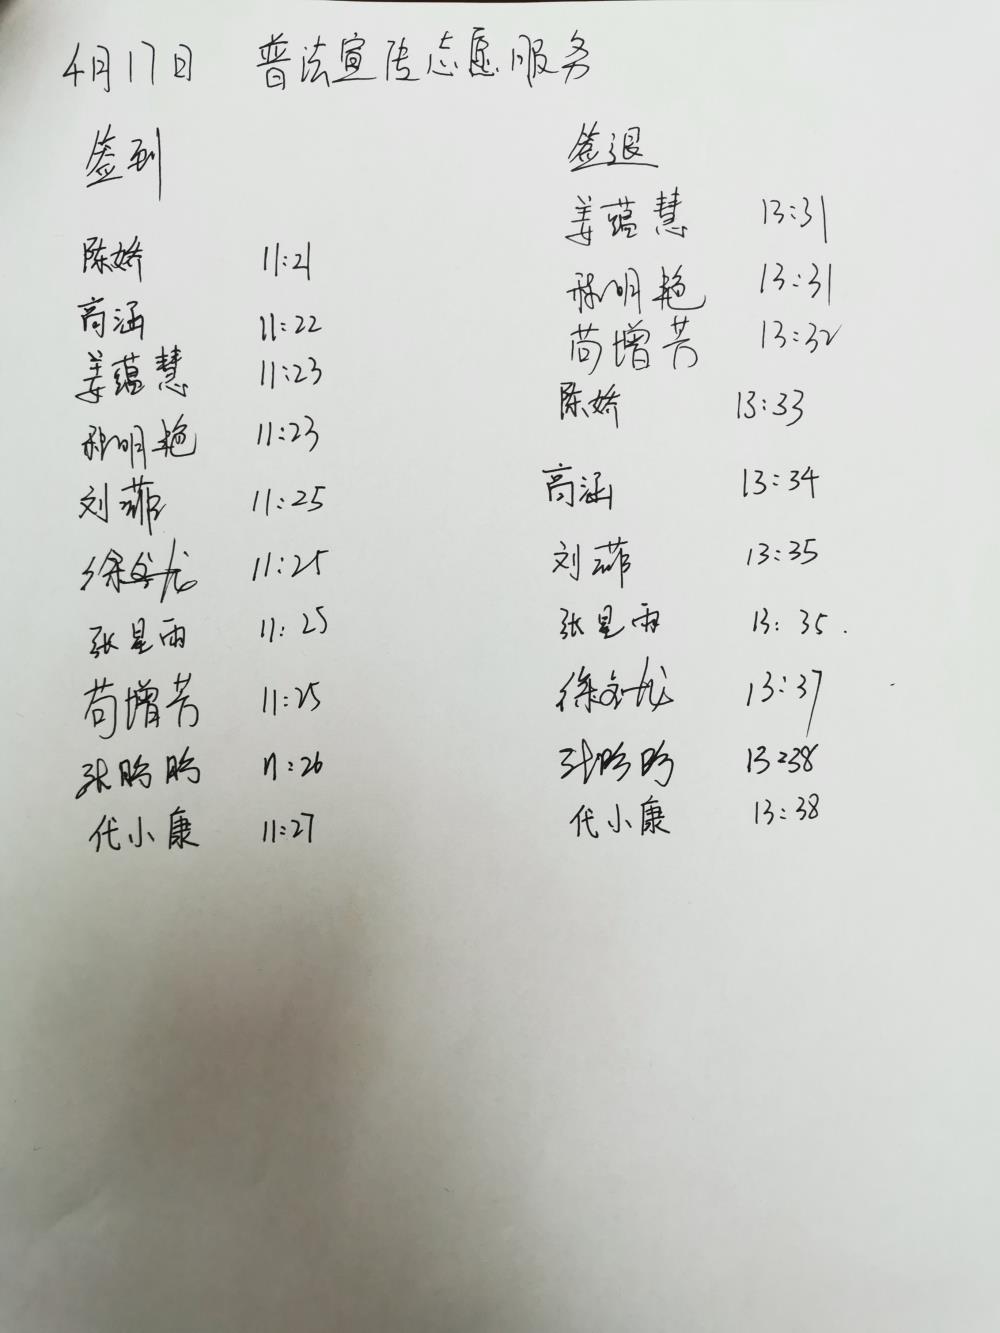 4月17日 普法宣传志愿服务
签到
陈娇 11:21
高涵 11:22
姜蕴慧 11:23
明艳 11:23
刘菲 11:25
徐文龙 11:25
张星雨 11:25
苟增芳 11:25
张盼盼 11:26
代小康 11:27
签退
姜蕴慧 13:31
明艳 13:31
苟增芳 13:32
陈娇 13:33
高涵 13:34
刘菲 13:35
张星雨 13:35.
徐文龙 13:37
张盼盼 13:38
代小康 13:38